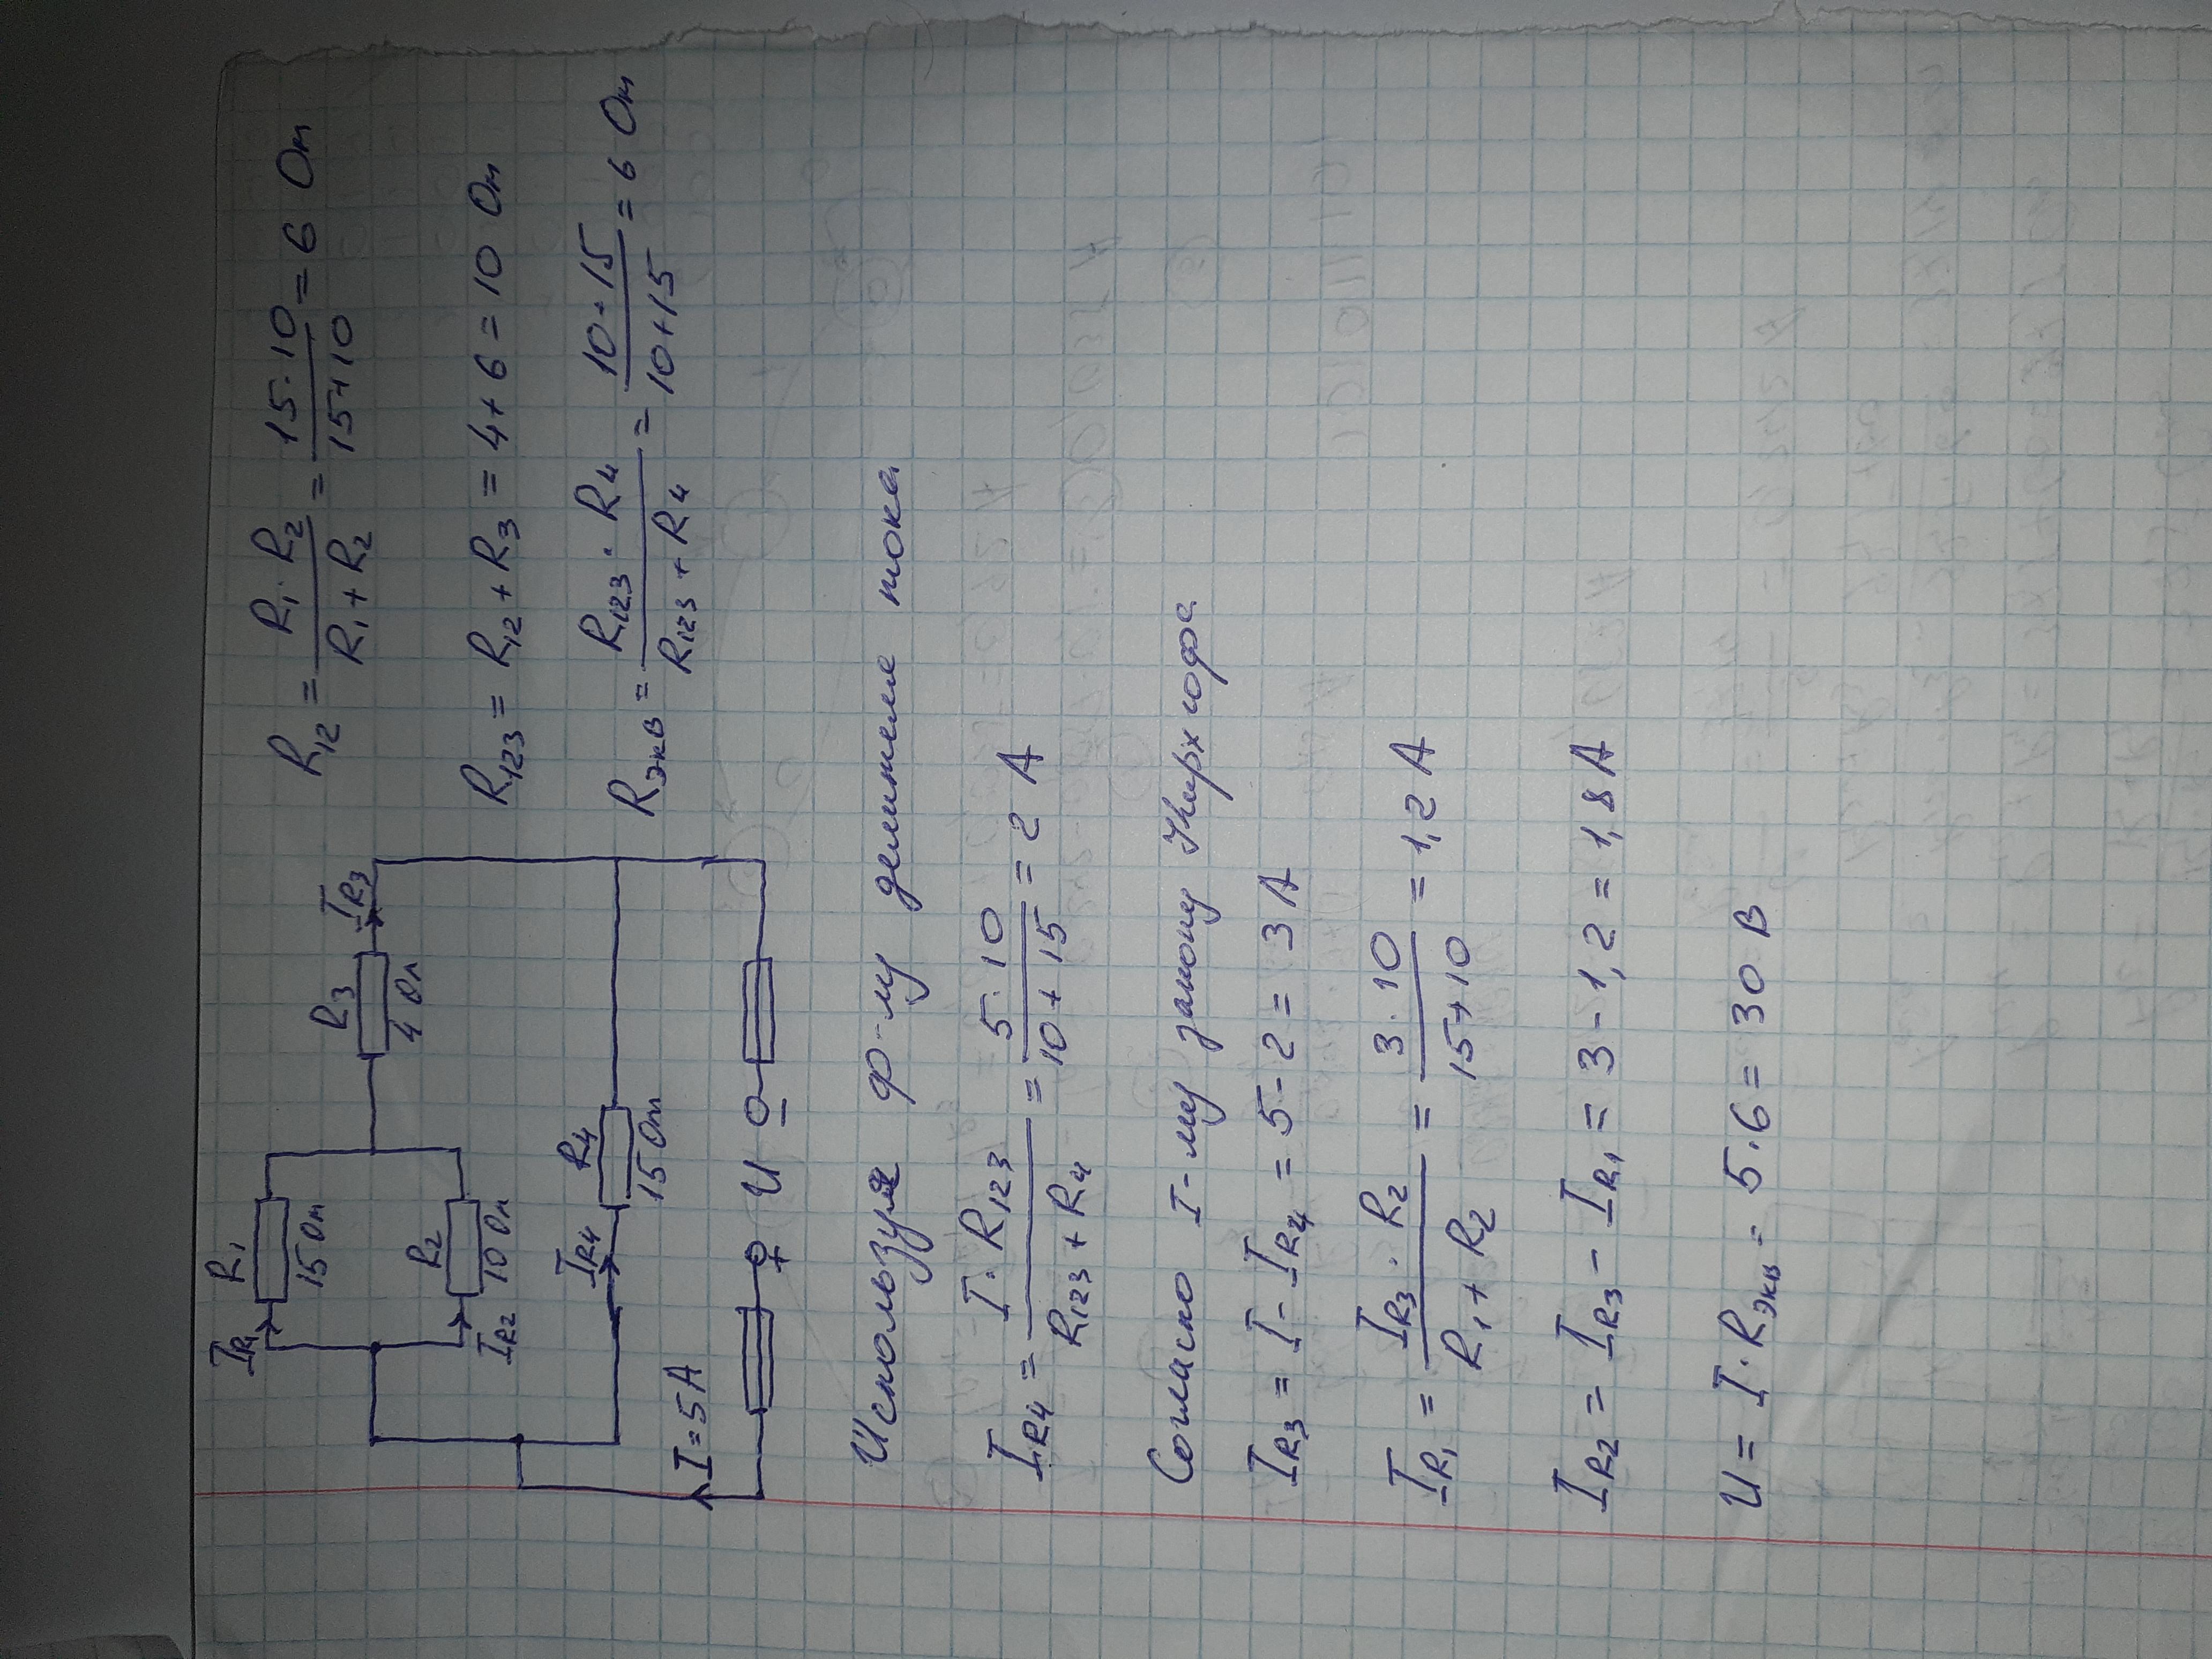 I_R1 R1 15 Ом
R3 I_R3
4 Ом
R2 10 Ом I_R2
I_R4 R4
15 Ом
I = 5 А
+ U -
R12 = (R1 · R2) / (R1 + R2) = (15 · 10) / (15 + 10) = 6 Ом
R123 = R12 + R3 = 4 + 6 = 10 Ом
Rэкв = (R123 · R4) / (R123 + R4) = (10 · 15) / (10 + 15) = 6 Ом
Используя ф-му делителя тока
I_R4 = (I · R123) / (R123 + R4) = (5 · 10) / (10 + 15) = 2 А
Согласно I-му закону Кирхгофа
I_R3 = I - I_R4 = 5 - 2 = 3 А
I_R1 = (I_R3 · R2) / (R1 + R2) = (3 · 10) / (15 + 10) = 1,2 А
I_R2 = I_R3 - I_R1 = 3 - 1,2 = 1,8 А
U = I · Rэкв = 5 · 6 = 30 В